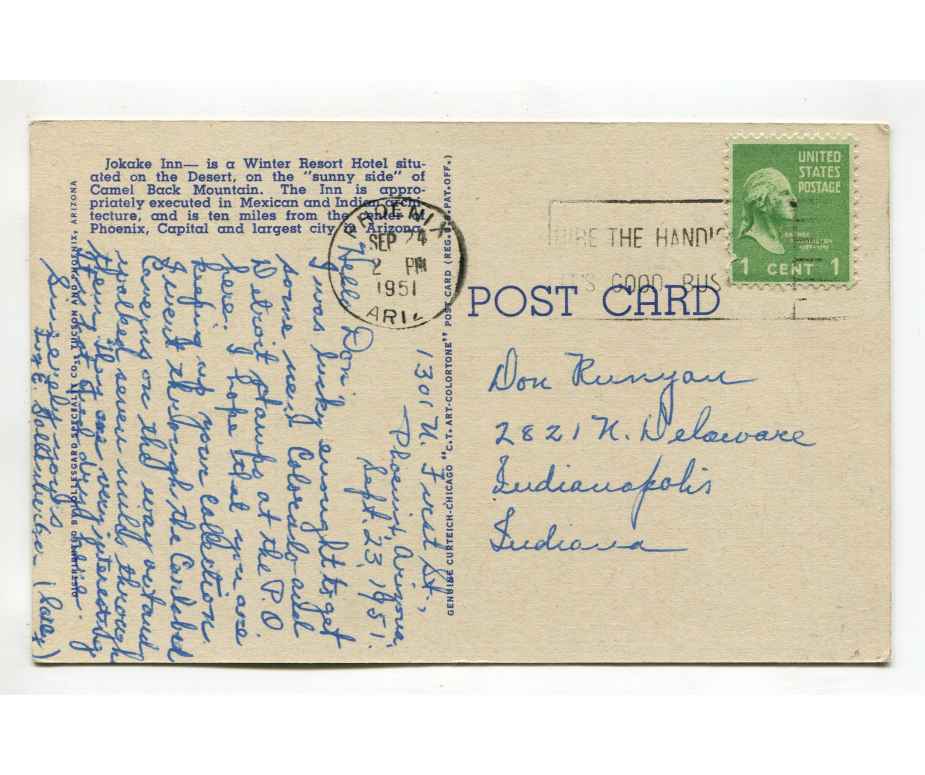 Jokake Inn— is a Winter Resort Hotel situ-
ated on the Desert, on the "sunny side" of
Camel Back Mountain. The Inn is appro-
priately executed in Mexican and Indian archi-
tecture, and is ten miles from the center of
Phoenix, Capital and largest city in Arizona.
PHOENIX
SEP 24
2 PM
1951
ARIZ
HIRE THE HANDIC
IT'S GOOD BUS
UNITED
STATES
POSTAGE
1 CENT 1
POST CARD
1301 N. First St.,
Phoenix, Arizona,
Sept. 23, 1951.
Hello Don,
I was lucky enough to get
some new Colorado and
Detroit stamps at the P.O.
here. I hope that you are
keeping up your collection.
I went through the Carlsbad
Caverns on the way out and
walked seven miles through
them. They are very interesting
Sincerely yours
Don Runyan
2821 N. Delaware
Indianapolis
Indiana
GENUINE CURTEICH-CHICAGO "C.T. ART-COLORTONE" POST CARD (REG. U.S. PAT. OFF.)
DISTRIBUTED BY LOLLESGARD SPECIALTY CO., TUCSON AND PHOENIX, ARIZONA